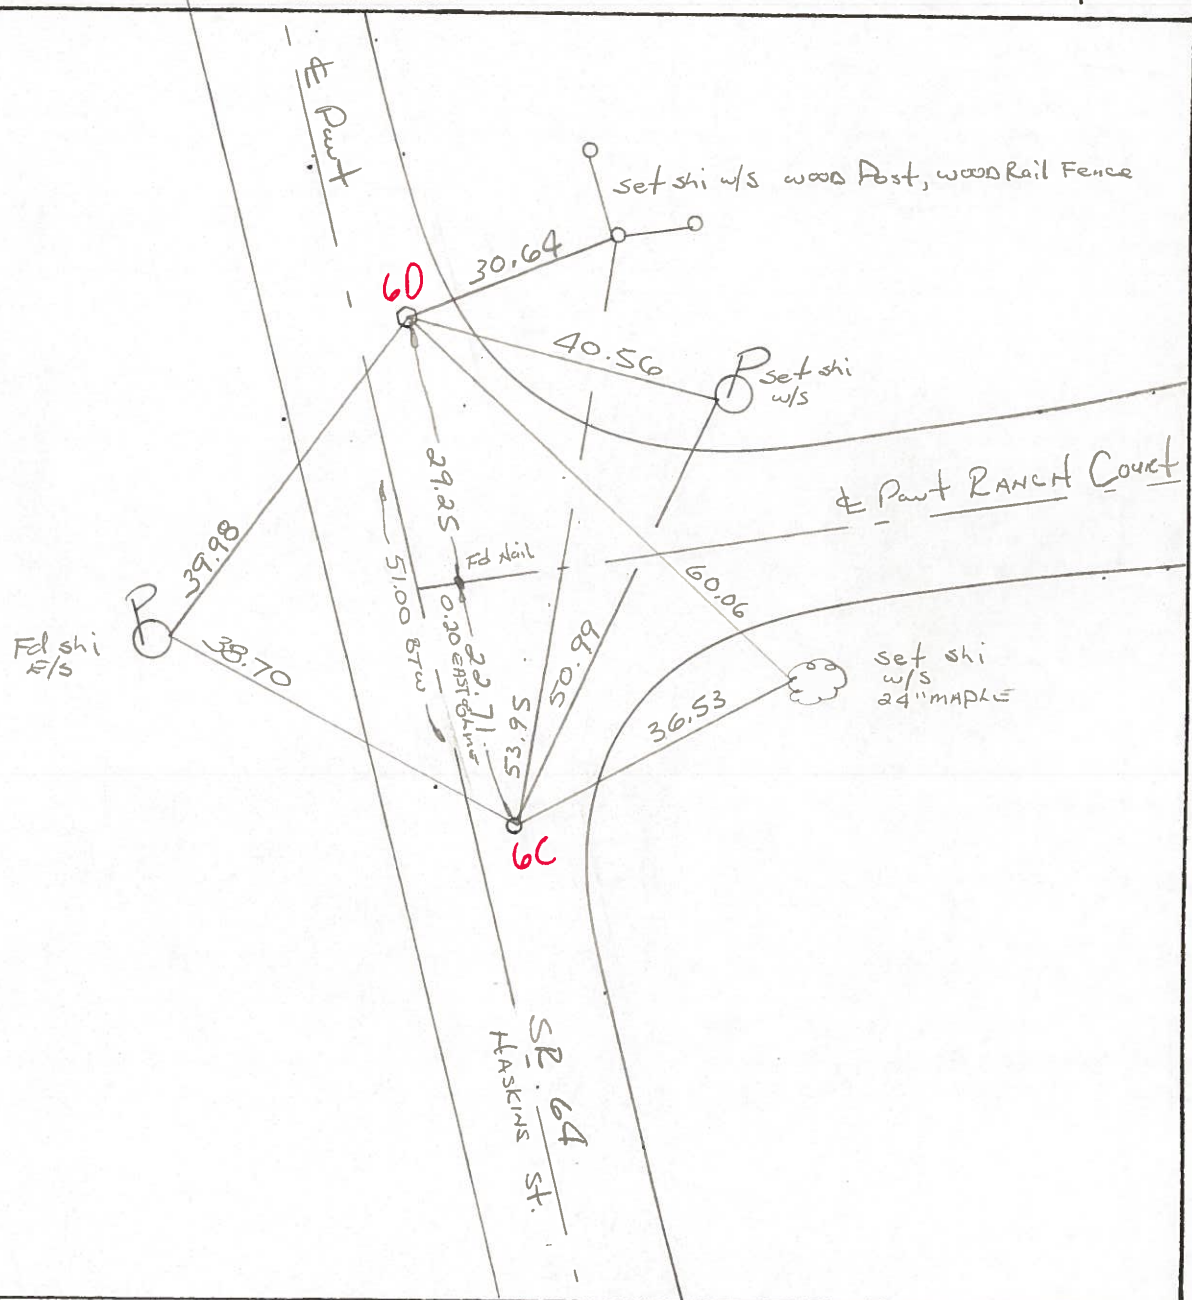 ℄ Pav't
set shi w/s wood Post, wood Rail Fence
30.64
6D
40.56
P
set shi
w/s
29.25
℄ Pav't RANCH Court
39.98
Fd Nail
51.00 BTW
60.06
P
Fd shi
E/s
38.70
0.20 EAST
22.71
53.95
50.99
36.53
set shi
w/s
24" MAPLE
6C
SR. 64
HASKINS St.